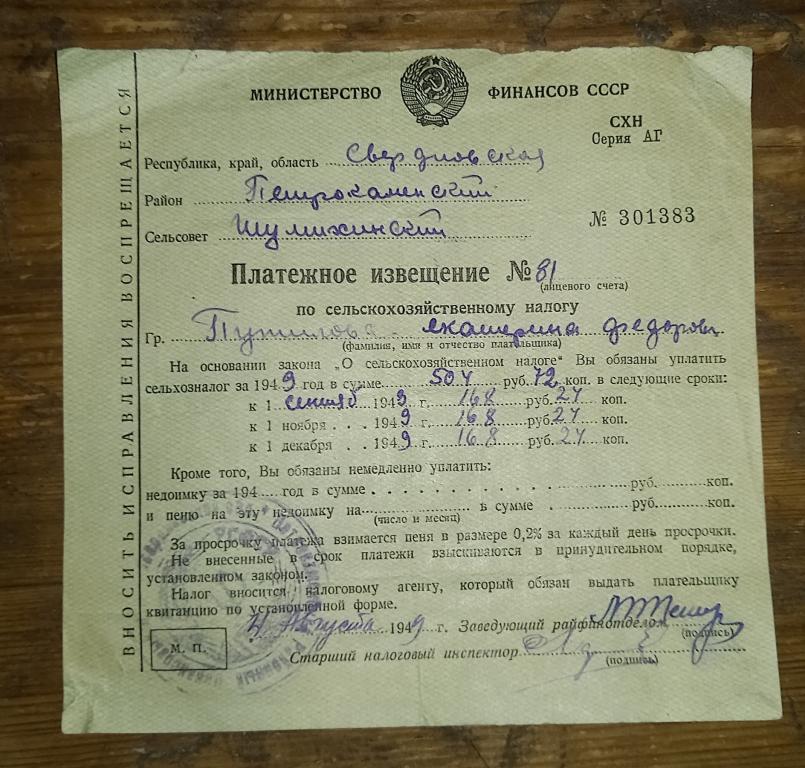 ВНОСИТЬ ИСПРАВЛЕНИЯ ВОСПРЕЩАЕТСЯ
МИНИСТЕРСТВО ФИНАНСОВ СССР
СХН
Серия АГ
Республика, край, область Свердловская
Район Петрокаменский
Сельсовет Шумихинский
№ 301383
Платежное извещение № 81
(лицевого счета)
по сельскохозяйственному налогу
Гр. Путилова Екатерина Федоровн
(фамилия, имя и отчество плательщика)
На основании закона „О сельскохозяйственном налоге" Вы обязаны уплатить
сельхозналог за 1949 год в сумме 504 руб. 72 коп. в следующие сроки:
к 1 сентяб 1949 г. 168 руб. 24 коп.
к 1 ноября . . . 1949 г. 168 руб. 24 коп.
к 1 декабря . . 1949 г. 168 руб. 24 коп.
Кроме того, Вы обязаны немедленно уплатить:
недоимку за 194 год в сумме руб. коп.
и пеню на эту недоимку на в сумме руб. коп.
(число и месяц)
За просрочку платежа взимается пеня в размере 0,2% за каждый день просрочки.
Не внесенные в срок платежи взыскиваются в принудительном порядке,
установленном законом.
Налог вносится налоговому агенту, который обязан выдать плательщику
квитанцию по установленной форме.
Августа 1949 г. Заведующий райфинотделом
(подпись)
М. П.
Старший налоговый инспектор
(подпись)